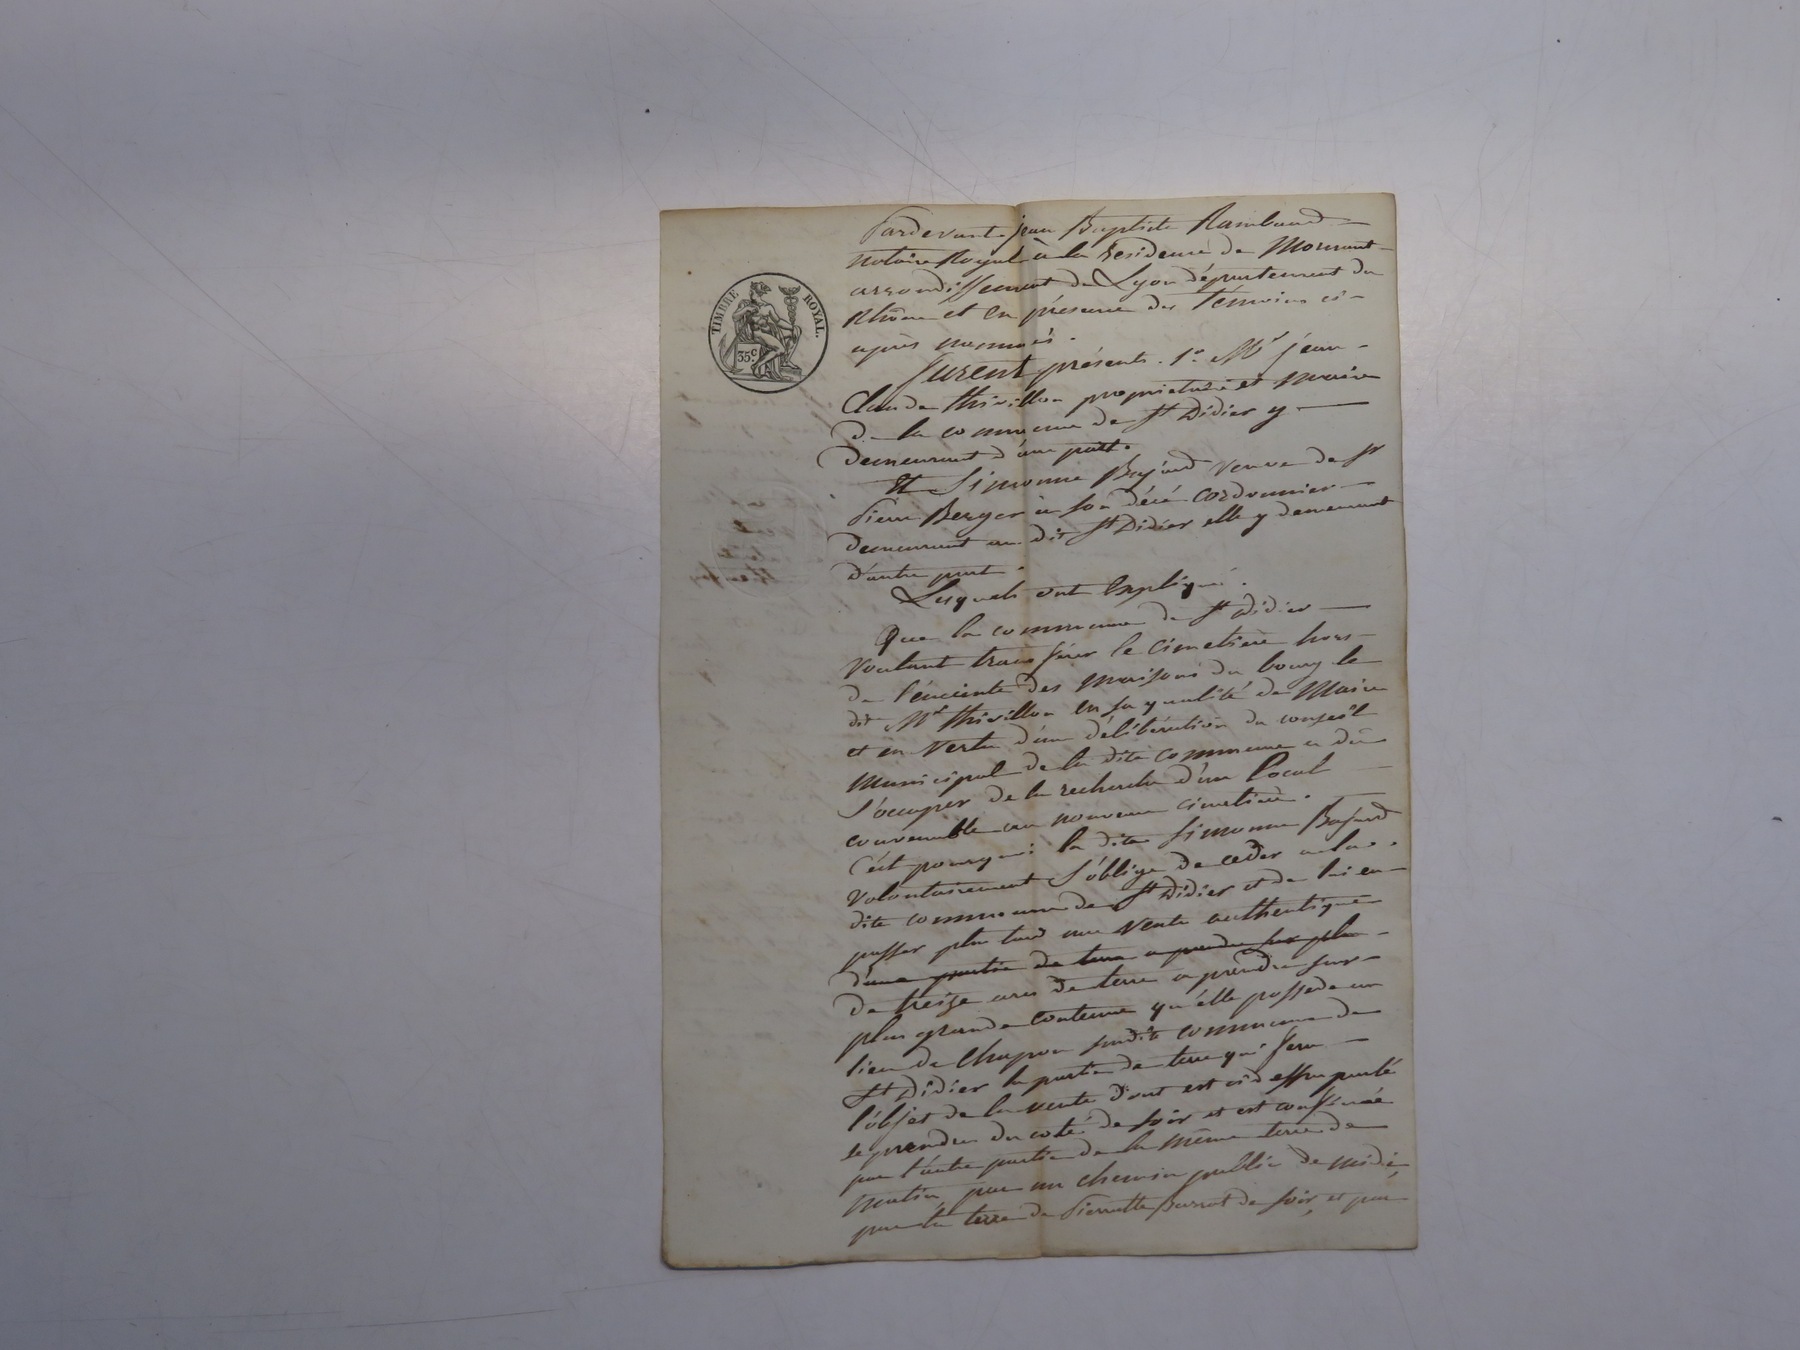 TIMBRE ROYAL.
35c
Pardevant jean Baptiste Rambaud
notaire Royal à la residence de Mornant
arrondissement de Lyon département du
Rhône et en présence des témoins ci-
après nommés.
furent présents. 1° Mr jean-
Claude thivillon propriétaire et maire
de la commune de St Didier y
demeurant d'une part.
Et Simonne Bajard veuve de Sr
Pierre Berger à son décé cordonnier
demeurant au dit St Didier elle y demeurant
d'autre part.
Lesquels ont Expliqué.
Que la commune de St Didier
voulant transférer le cimetière hors
de l'enceinte des maisons du bourg le
dit Mr thivillon en sa qualité de Maire
et en vertu d'une délibération du conseil
municipal de la dite commune a dû
s'occuper de la recherche d'un local
convenable au nouveau cimetière.
C'est pourquoi la dite Simonne Bajard
volontairement s'oblige de ceder a la
dite commune de St Didier et de lui en
passer plus tard une vente authentique
d'une partie de terre a prendre sur plu
de treize ares de terre a prendre sur
plus grande contenue qu'elle possede au
lieu de Chapon susdite commune de
St Didier la partie de terre qui sera
l'objet de la vente dont est ci dessus parlé
se prendra du coté de soir et est confinée
par l'autre partie de la même terre de
matin, par un chemin public de midi,
par la terre de Pierrette de soir, et par